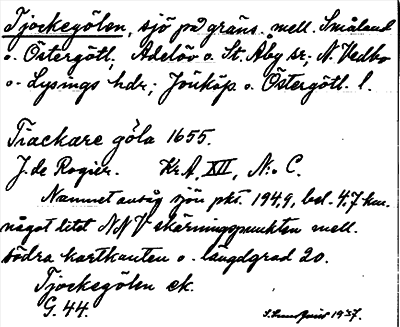 Tjockegölen, sjö på gräns. mell. Småland
o. Östergötl. Adelöv o. St. Åby sr; N. Vedbo
o. Lysings hdr; Jönköp. o. Östergötl. l.
Trackare göla 1655.
J. de Rogier. Kr. A. XII, N:o C.
Namnet avsåg sjön pkt. 194,9, bel. 4,7 km.
något litet NNV skärningspunkten mell.
södra kartkanten o. längdgrad 20.
Tjockegölen ek.
G. 44.
1937.